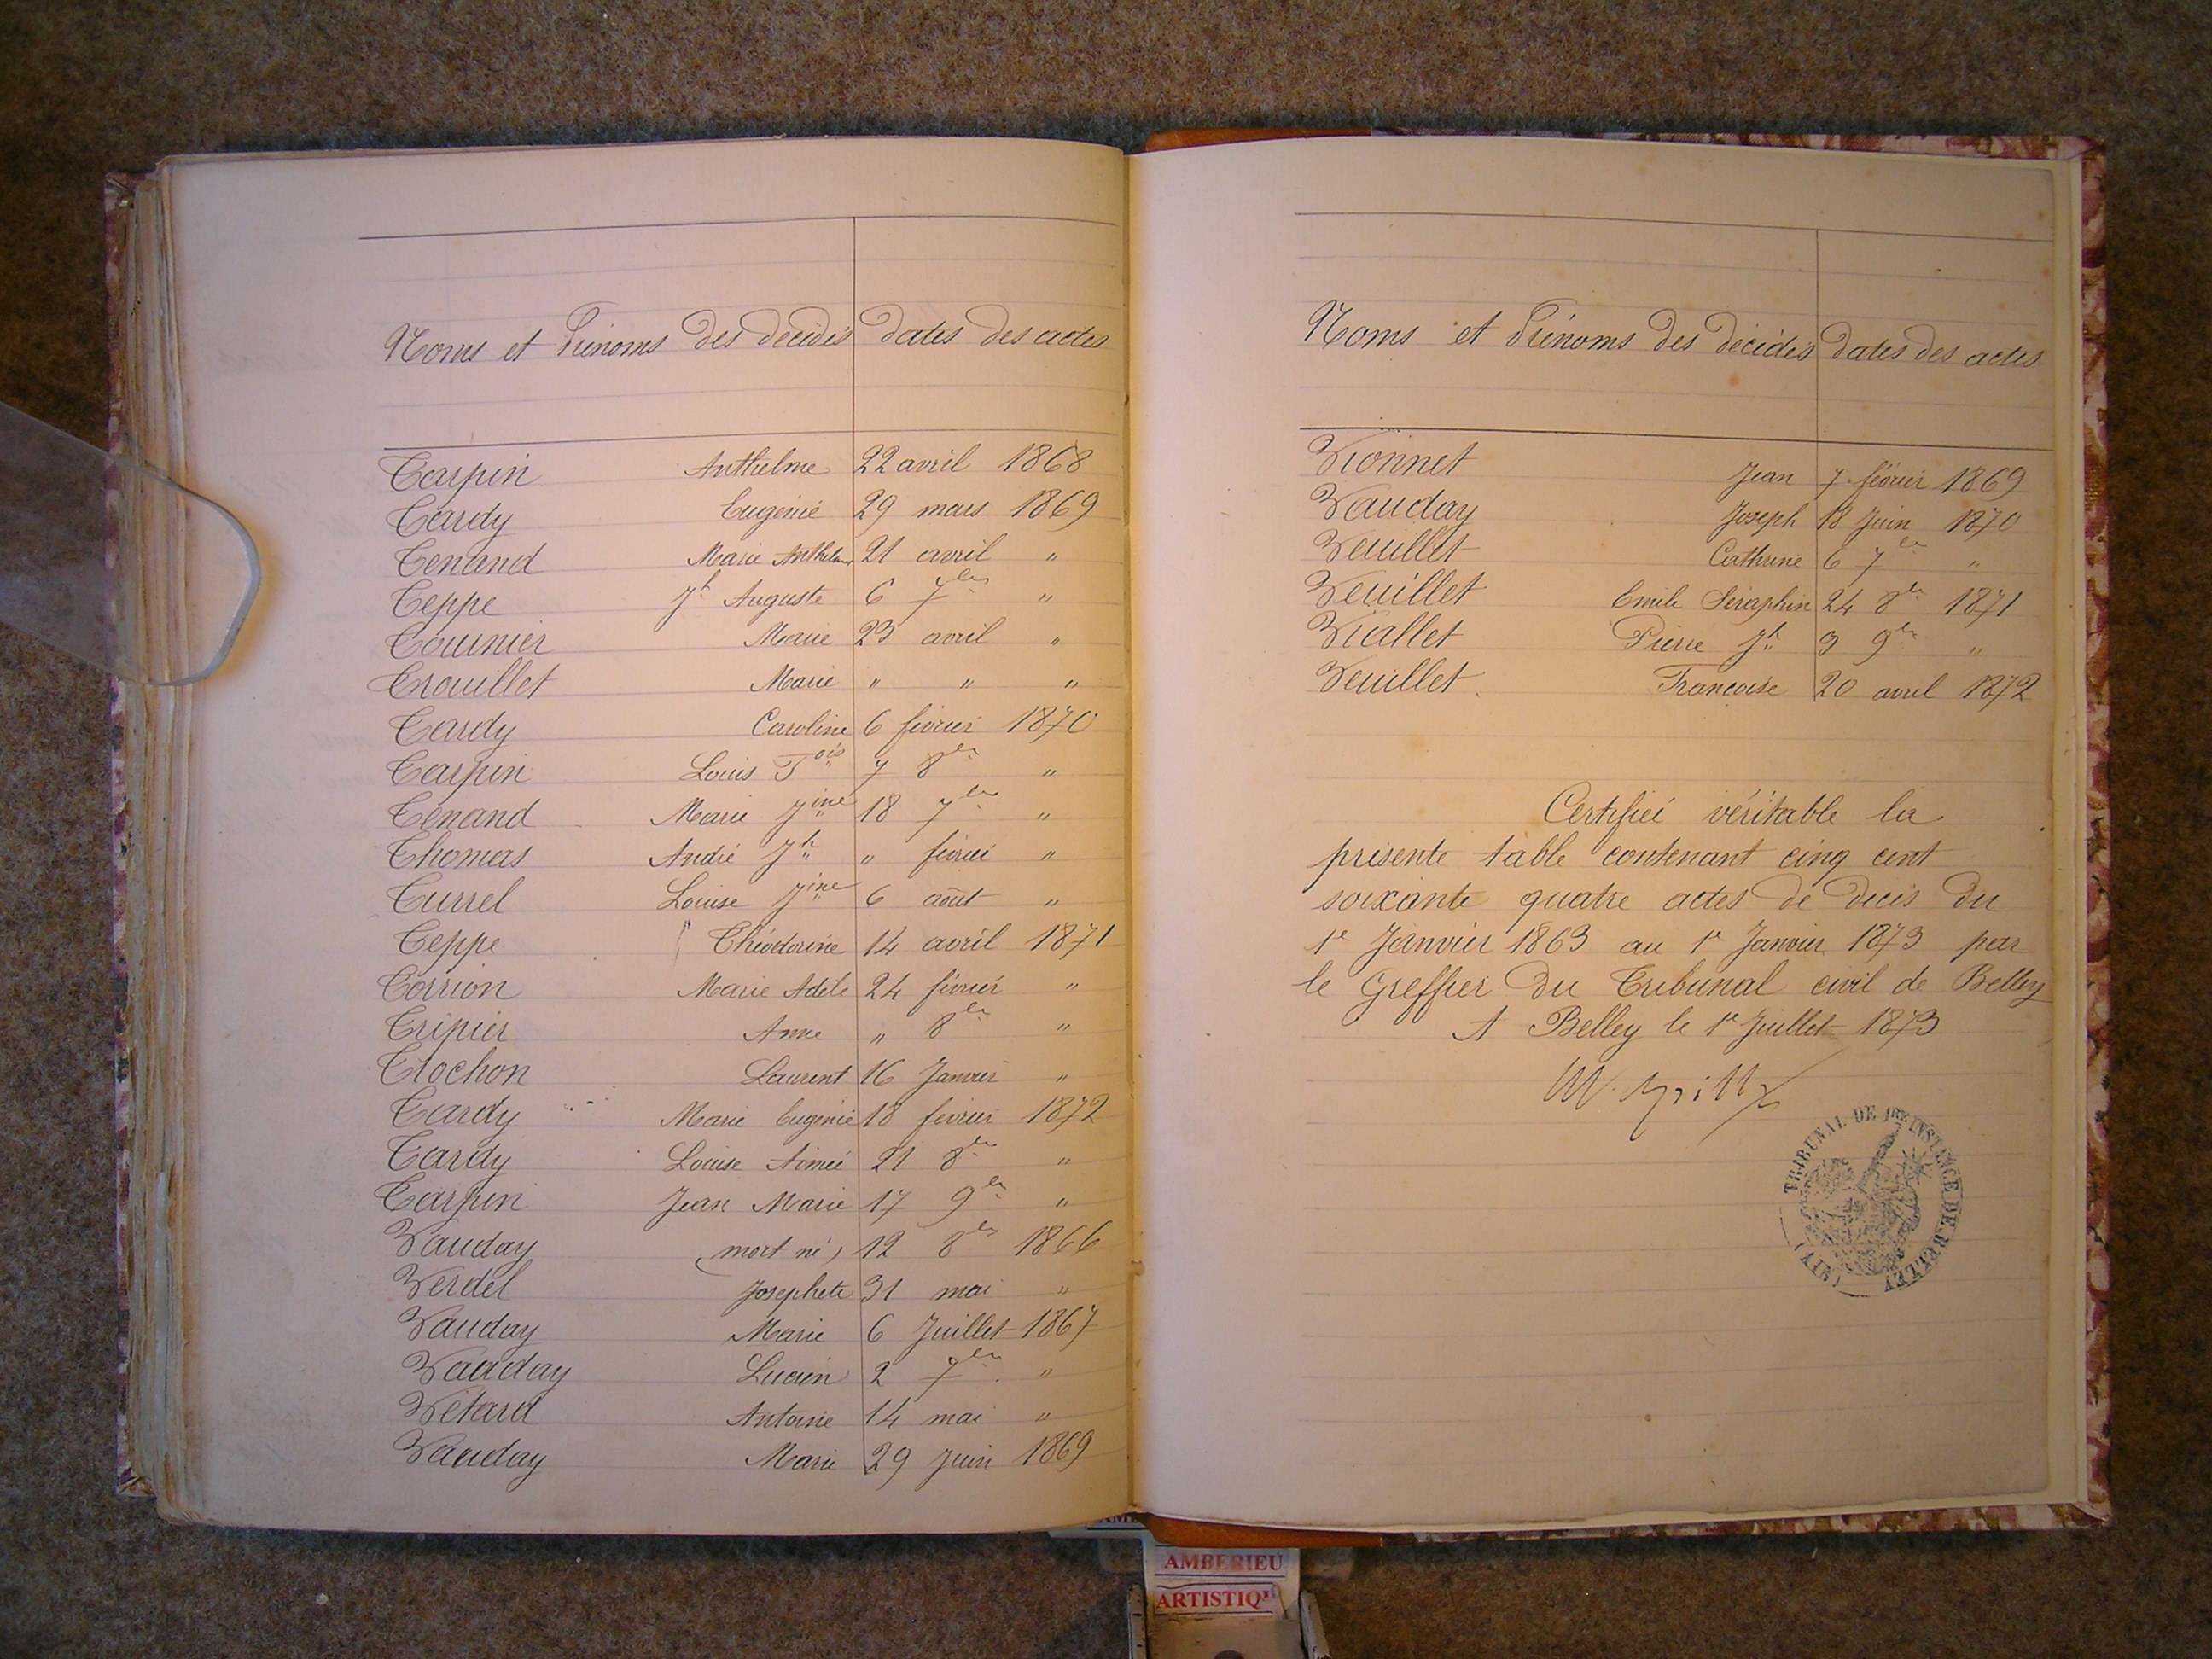 Noms et Prénoms des décédés dates des actes
Tarpin Anthelme 22 avril 1868
Tardy Eugénie 29 mars 1869
Tenand Marie Anthelme 21 avril "
Teppe Jh Auguste 6 7bre "
Tournier Marie 23 avril "
Trouillet Marie " " "
Tardy Caroline 6 février 1870
Tarpin Louis Fois 7 8bre "
Tenand Marie Jine 18 7bre "
Thomas André Jh " février "
Turrel Louise Jine 6 août "
Teppe Théodorine 14 avril 1871
Torrion Marie Adèle 24 février "
Tripier Anne " 8bre "
Trochon Laurent 16 Janvier "
Tardy Marie Eugénie 18 février 1872
Tardy Louise Aimée 21 8bre "
Tarpin Jean Marie 17 9bre "
Vauday (mort né) 12 8bre 1866
Verdel Josephete 31 mai "
Vauday Marie 6 Juillet 1867
Vauday Lucien 2 7bre "
Vétard Antoine 14 mai "
Vauday Marie 29 Juin 1869
Noms et Prénoms des décédés dates des actes
Vionnet Jean 7 février 1869
Vauday Joseph 18 Juin 1870
Veuillet Catherine 6 7bre "
Veuillet Emile Séraphin 24 8bre 1871
Viallet Pierre Jh 3 9bre "
Veuillet Françoise 20 avril 1872
Certifiéi véritable la
présente table contenant cinq cent
soixante quatre actes de décès du
1er Janvier 1863 au 1er Janvier 1873 par
le Greffier du Tribunal civil de Belley
A Belley le 1er Juillet 1873
TRIBUNAL DE 1RE INSTANCE DE BELLEY
(AIN)
AMBERIEU
ARTISTIQ